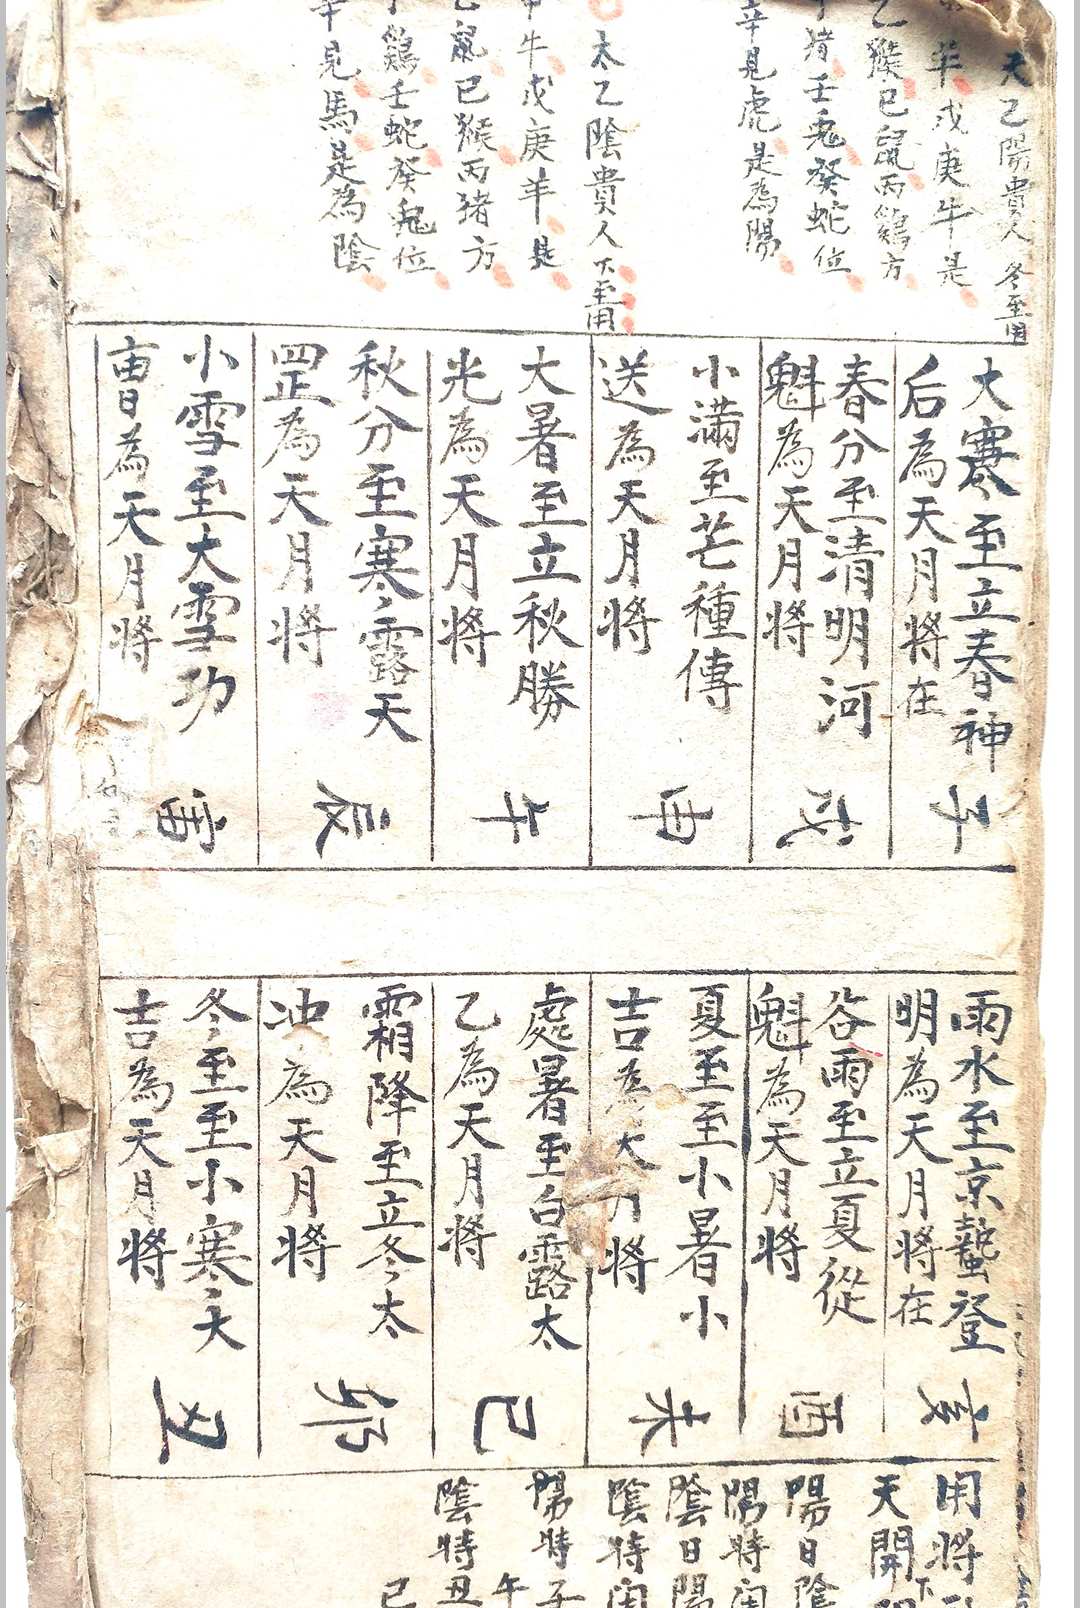 天乙陽貴人 冬至用
羊戊庚牛是
乙猴己鼠丙鷄方
猪壬兔癸蛇位
辛見虎是為陽
太乙陰貴人 下至用
牛戊庚羊是
乙鼠己猴丙猪方
鷄壬蛇癸兔位
辛見馬是為陰
大寒至立春神
后為天月將在
子
春分至清明河
魁為天月將
戌
小滿至芒種傳
送為天月將
申
大暑至立秋勝
光為天月將
午
秋分至寒露天
罡為天月將
辰
小雪至大雪功
曹為天月將
寅
雨水至京蟄登
明為天月將在
亥
谷雨至立夏從
魁為天月將
酉
夏至至小暑小
吉為天月將
未
處暑至白露太
乙為天月將
巳
霜降至立冬太
冲為天月將
卯
冬至至小寒大
吉為天月將
丑
用將
天開
陽日陰
陽時
陰日陽
陰時
陽時子
午
陰時丑
巳